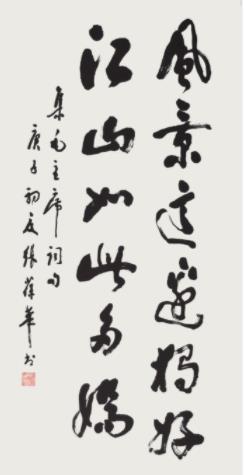 風景這邊獨好
江山如此多嬌
集毛主席詞句
庚子初夏張葆華书